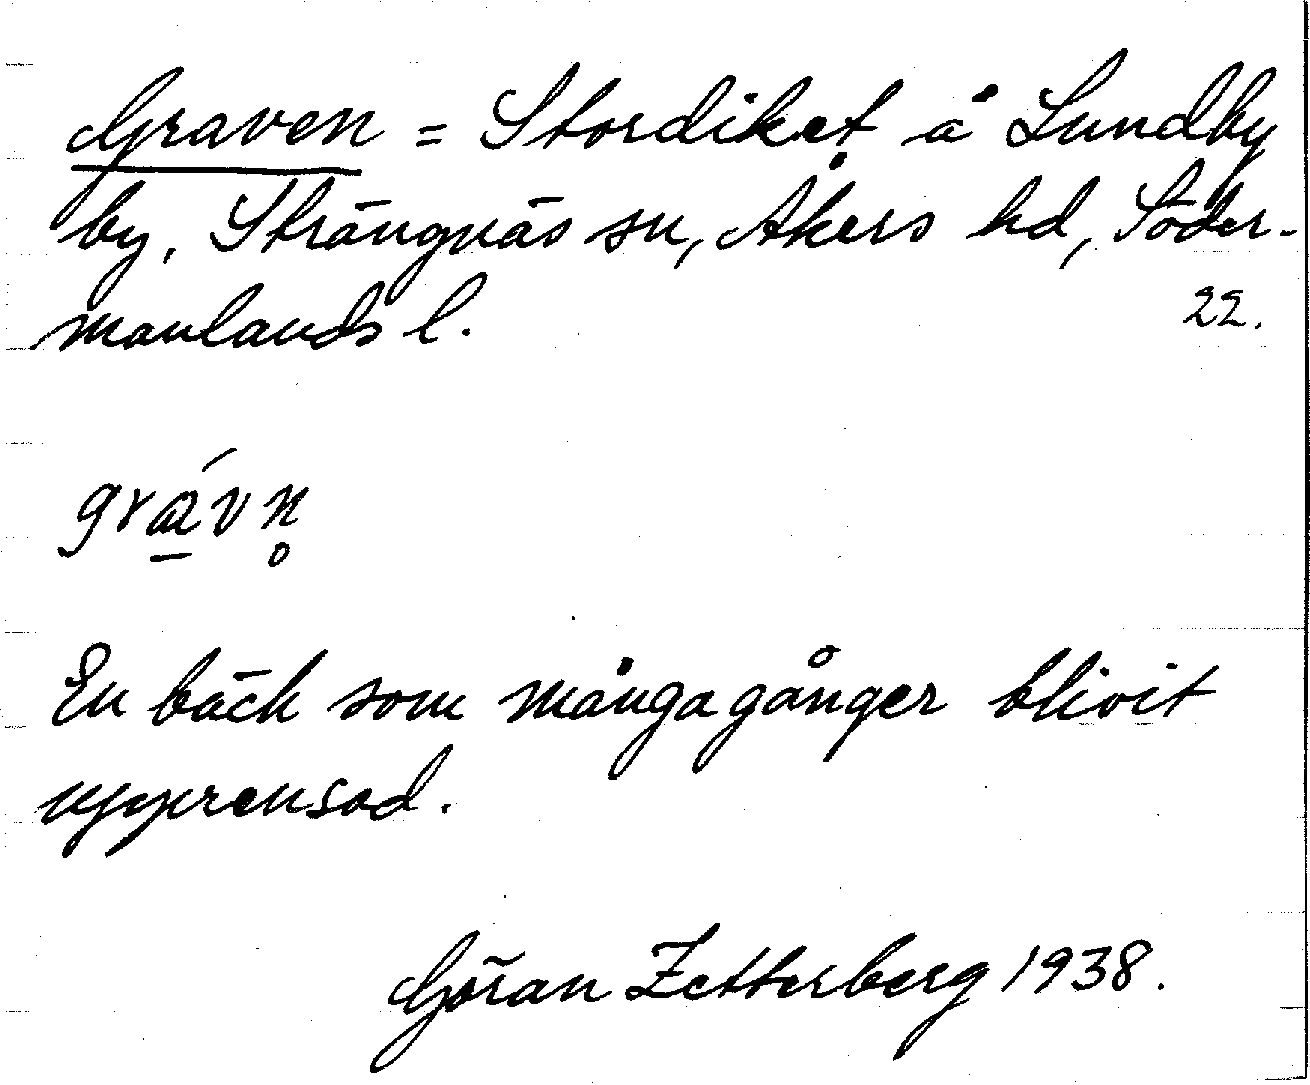 Graven = Stordiket å Lundby
by, Strängnäs sn, Åkers hd, Söder-
manlands l.
22.
grávn̥
En bäck som många gånger blivit
upprensad.
Göran Zetterberg 1938.